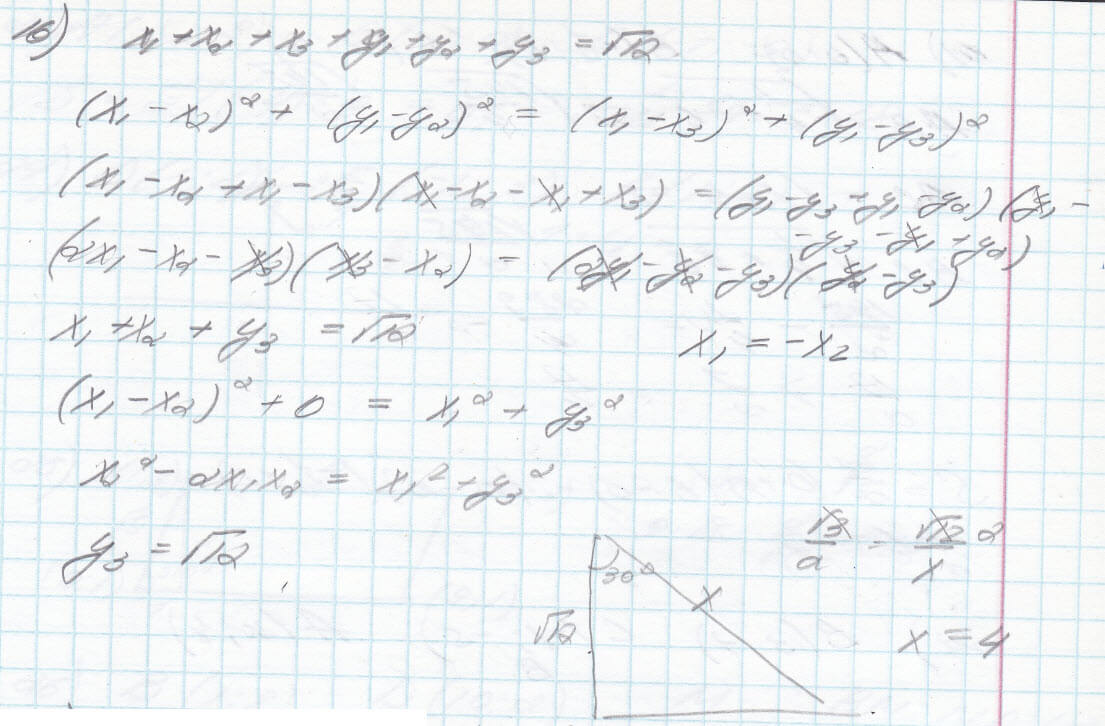 16) x₁ + x₂ + x₃ + y₁ + y₂ + y₃ = √12
(x₁ - x₂)² + (y₁ - y₂)² = (x₁ - x₃)² + (y₁ - y₃)²
(x₁ - x₂ + x₁ - x₃)(x₁ - x₂ - x₁ + x₃) = (y₁ - y₃ + y₁ - y₂)(y₁ -
- y₃ - y₁ + y₂)
(2x₁ - x₂ - x₃)(x₃ - x₂) = (2y₁ - y₂ - y₃)(y₂ - y₃)
x₁ + x₂ + y₃ = √12
x₁ = -x₂
(x₁ - x₂)² + 0 = x₁² + y₃²
x₂² - 2x₁x₂ = x₁² + y₃²
y₃ = √12
30°
x
√12
√3/2 = √12/x
2
x = 4